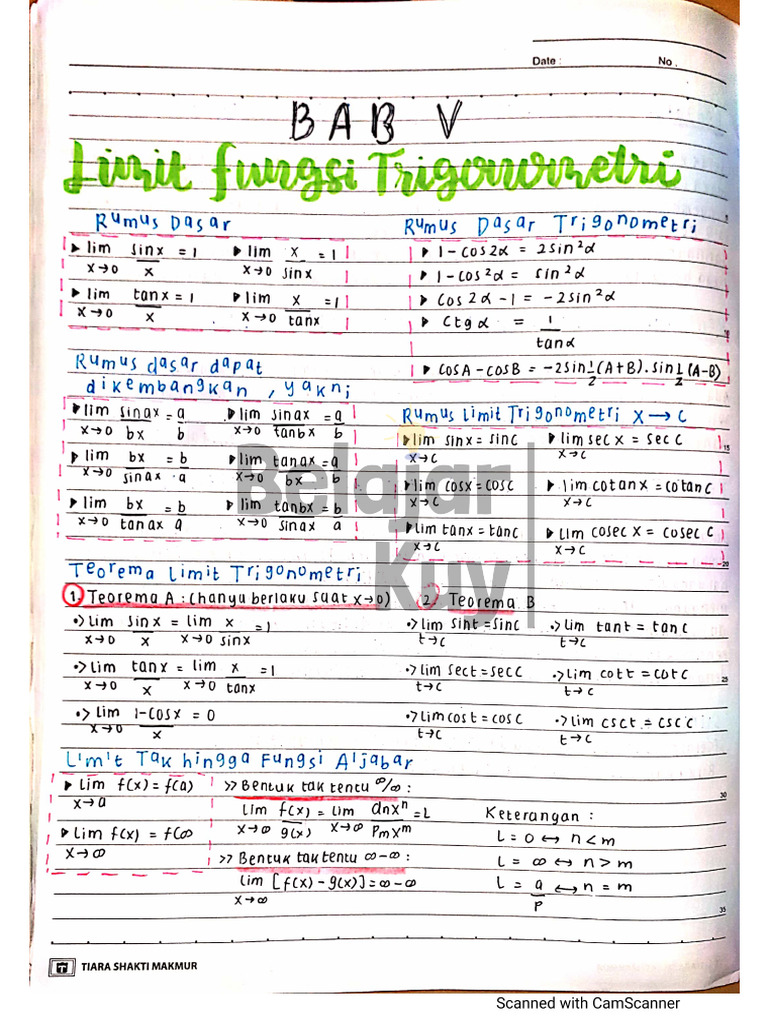 Date :
No .
BAB V
Limit Fungsi Trigonometri
Rumus Dasar
▶ lim x→0 sinx/x = 1 ▶ lim x→0 x/sinx = 1
▶ lim x→0 tanx/x = 1 ▶ lim x→0 x/tanx = 1
Rumus Dasar Trigonometri
▶ 1-cos2α = 2sin²α
▶ 1-cos²α = sin²α
▶ Cos2α-1 = -2sin²α
▶ Ctgα = 1/tanα
▶ CosA-cosB = -2sin1/2(A+B).sin1/2(A-B)
Rumus dasar dapat
dikembangkan, yakni
▶ lim x→0 sinax/bx = a/b ▶ lim x→0 sinax/tanbx = a/b
▶ lim x→0 bx/sinax = b/a ▶ lim x→0 tanax/bx = a/b
▶ lim x→0 bx/tanax = b/a ▶ lim x→0 tanbx/sinax = b/a
Rumus Limit Trigonometri x→c
▶ lim x→c sinx = sinc ▶ lim x→c sec x = sec c
▶ lim x→c cosx = cosc ▶ lim x→c cotanx = cotanc
▶ lim x→c tanx = tanc ▶ lim x→c cosec x = cosec c
Belajar
Kuy
Teorema Limit Trigonometri
1. Teorema A : (hanya berlaku saat x→0)
•> lim x→0 sinx/x = lim x→0 x/sinx = 1
•> lim x→0 tanx/x = lim x→0 x/tanx = 1
•> lim x→0 1-cosx/x = 0
2. Teorema B
•> lim t→c sint = sinc •> lim t→c tant = tanc
•> lim t→c sect = secc •> lim t→c cott = cotc
•> lim t→c cost = cosc •> lim t→c csct = cscc
Limit Tak hingga Fungsi Aljabar
▶ lim x→a f(x) = f(a)
▶ Lim x→∞ f(x) = f(∞
>> Bentuk tak tentu ∞/∞ :
lim x→∞ f(x)/g(x) = lim x→∞ anxⁿ/Pmxᵐ = L
>> Bentuk tak tentu ∞-∞ :
lim x→∞ [f(x)-g(x)] = ∞-∞
Keterangan :
L = 0 ↔ n<m
L = ∞ ↔ n>m
L = a/P ↔ n = m
15
20
25
30
35
TIARA SHAKTI MAKMUR
Scanned with CamScanner